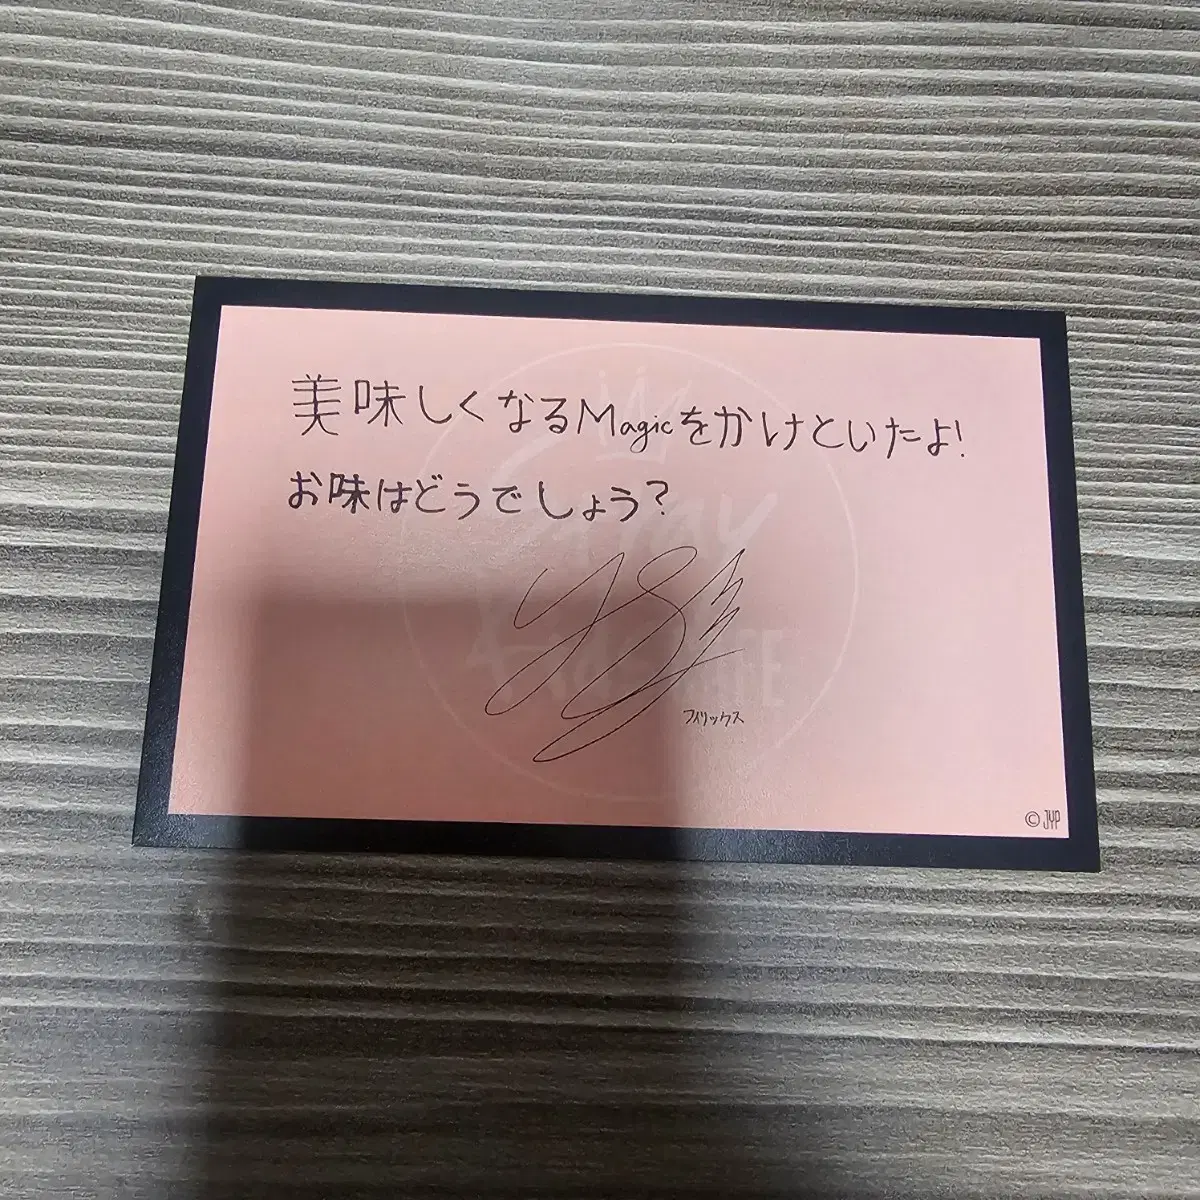 美味しくなるMagicをかけといたよ!
お味はどうでしょう?
Stray
Kids
フィリックス
© JYP